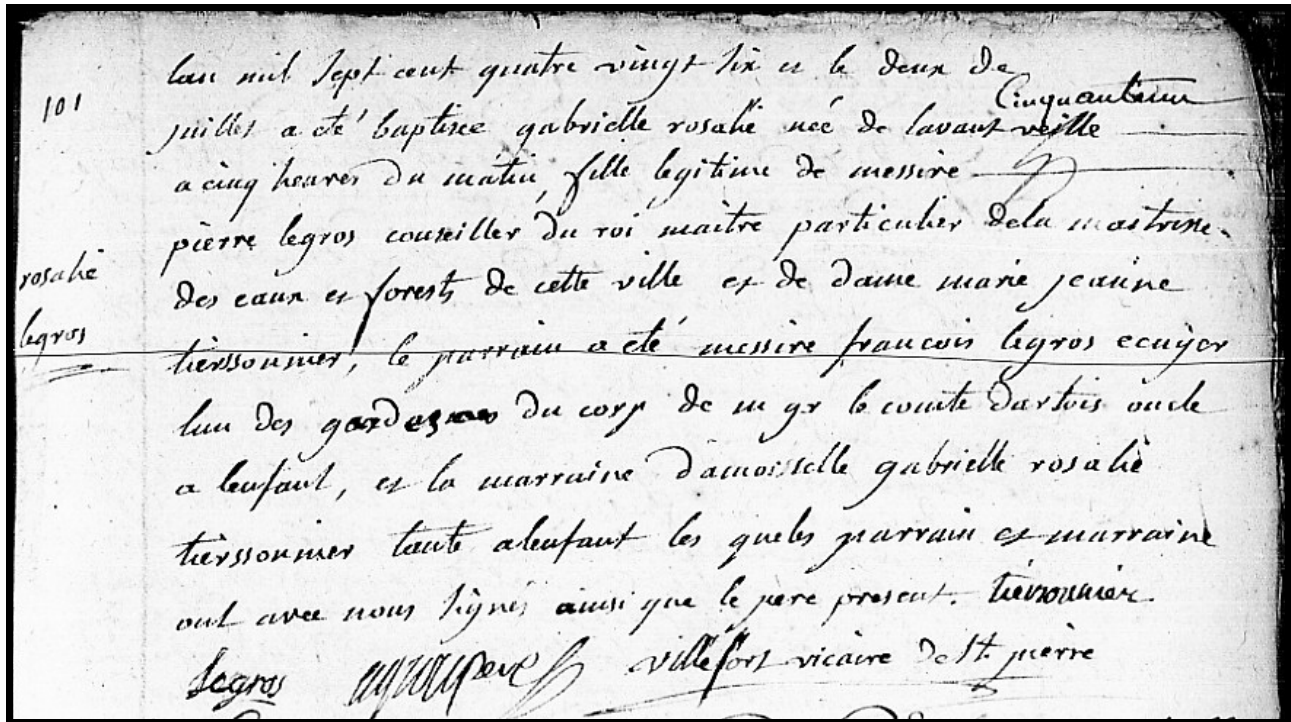 lan mil sept cent quatre vingt six et le deux de
Cinquanteun
101
juillet a eté baptisée gabrielle rosalie née de lavant veille
a cinq heures du matin, fille legitime de messire
pierre legros conseiller du roi maitre particulier dela maitrise
des eaux et forests de cette ville et de dame marie jeanne
rosalie
legros
tierssonnier, le parrain a eté messire francois legros ecuyer
lun des gardes du corp de m gr le comte dartois oncle
a lenfant, et la marraine damoisselle gabrielle rosalie
tierssonnier tante alenfant les quels parrain et marraine
ont avec nous signés ainsi que le pere present. tiersonnier
Legros villefort vicaire de St. pierre